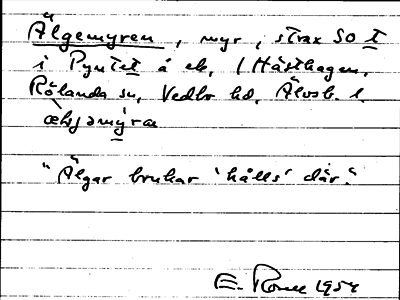 Älgemyren, myr, strax SO t
i Pyntet å ek, (Hästhagen,
Rölanda sn, Vedbo hd, Älvsb. l.
æljəmýra
"Älgar brukar 'hålls' där."
E. 1954